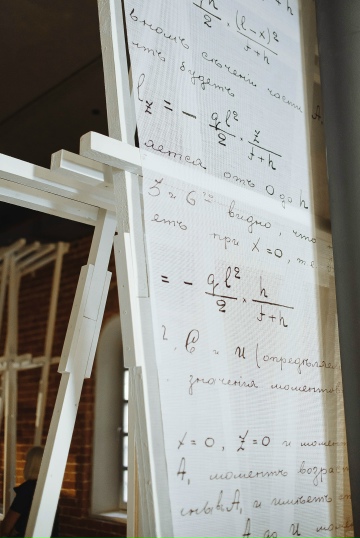 qh/2 · (l-x)²/(f+h)
вномъ сѣченіи части A
ить будетъ
l_z = - ql²/2 · z/(f+h)
ается отъ 0 до h
5 и 6 видно, что
етъ при x=0, т е
= - ql²/2 · h/(f+h)
и (опредѣляе
значенія моментов
x=0, z=0 и момен
A, моментъ возрас
A, и имѣетъ
A до U моме